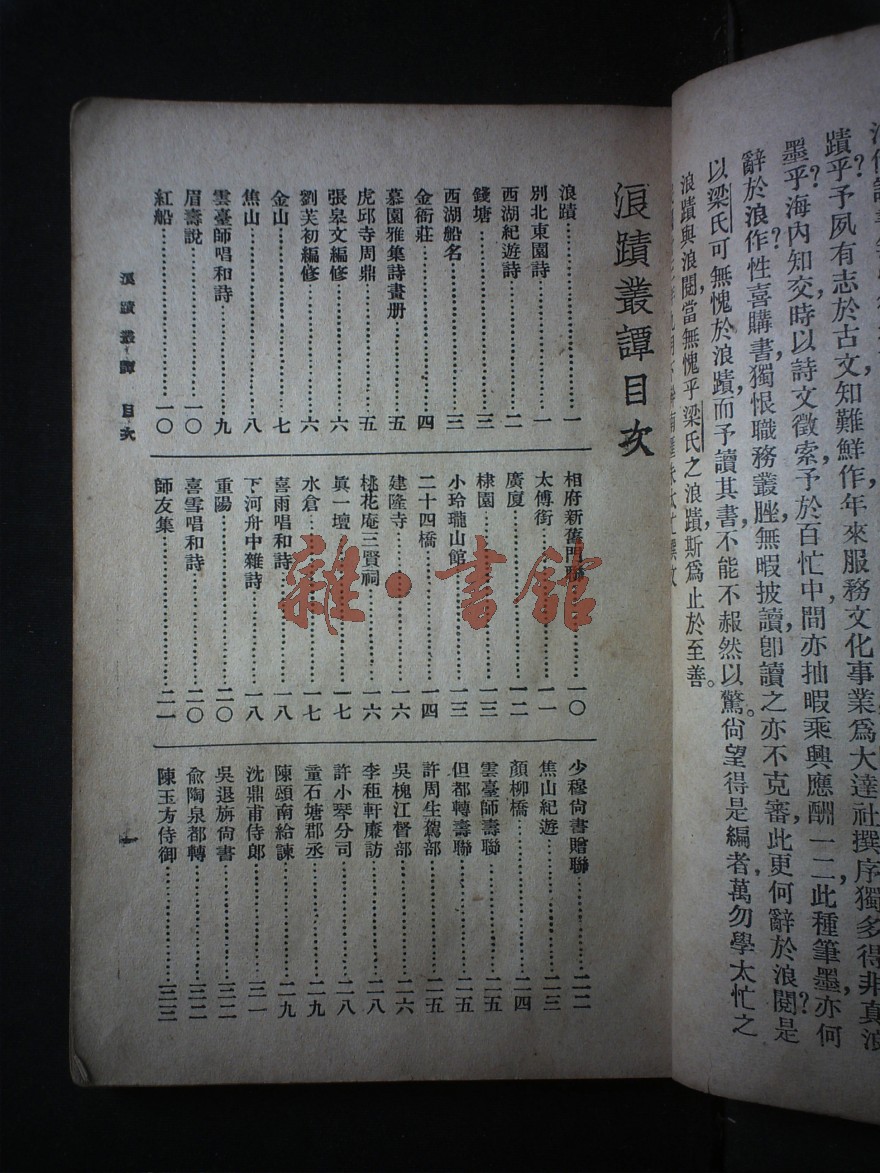 蹟乎?予夙有志於古文,知難鮮作,年來服務文化事業,爲大達社撰序獨多,得非真浪
墨乎?海內知交,時以詩文徵索,予於百忙中,間亦抽暇乘興應酬一二,此種筆墨,亦何
辭於浪作?性喜購書,獨恨職務叢脞,無暇披讀,卽讀之亦不克審,此更何辭於浪閱?是
以梁氏可無愧於浪蹟,而予讀其書,不能不赧然以驚。尙望得是編者,萬勿學太忙之
浪蹟與浪閱,當無愧乎梁氏之浪蹟,斯爲止於至善。
浪蹟叢譚目次
浪蹟……一
別北東園詩……一
西湖紀遊詩……二
錢塘……三
西湖船名……三
金衙莊……四
慕園雅集詩畫册……五
虎邱寺周鼎……五
張皋文編修……六
劉芙初編修……六
金山……七
焦山……八
雲臺師唱和詩……九
眉壽說……一〇
紅船……一〇
相府新舊門聯……一〇
太傅街……一一
廣廈……一二
棣園……一三
小玲瓏山館……一三
二十四橋……一四
建隆寺……一六
桃花庵三賢祠……一六
眞一壇……一七
水倉……一七
喜雨唱和詩……一八
下河舟中雜詩……一八
重陽……二〇
喜雪唱和詩……二〇
師友集……二一
少穆尙書贈聯……二二
焦山紀遊……二三
顏柳橋……二四
雲臺師壽聯……二五
但都轉壽聯……二五
許周生駕部……二五
吳槐江督部……二六
李秬軒廉訪……二八
許小琴分司……二八
童石塘郡丞……二九
陳頌南給諫……二九
沈鼎甫侍郎……三一
吳退旃尙書……三二
俞陶泉都轉……三二
陳玉方侍御……三三
浪蹟叢譚 目次
一
雜·書館